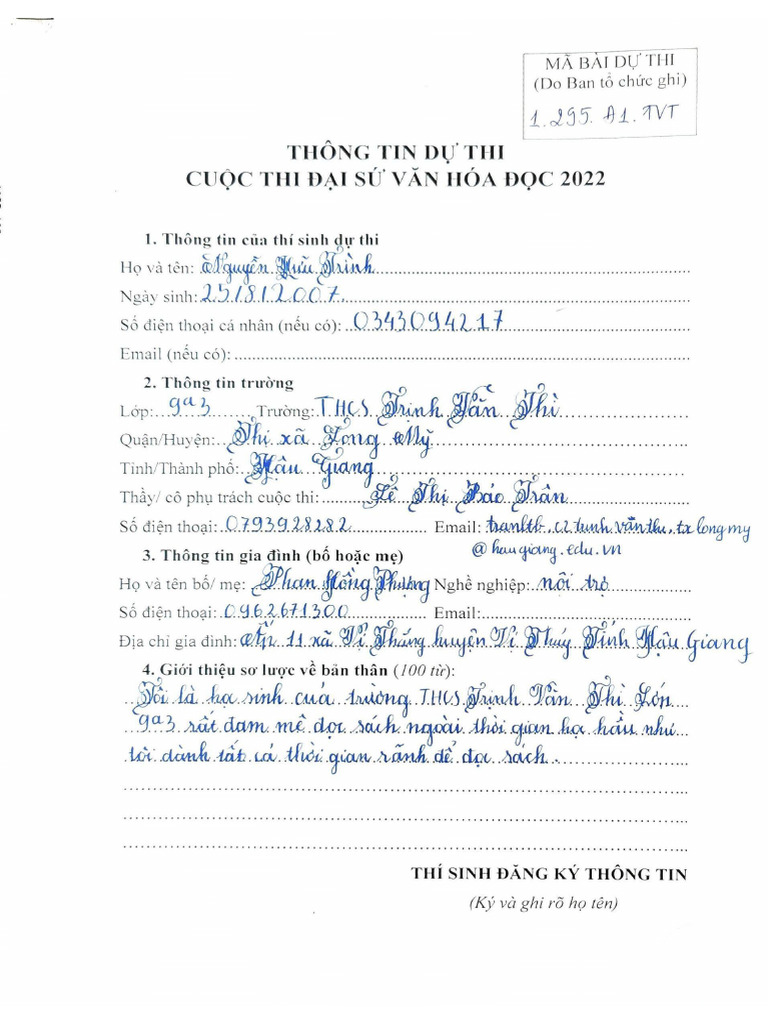 MÃ BÀI DỰ THI
(Do Ban tổ chức ghi)
1.295.A1.TVT
THÔNG TIN DỰ THI
CUỘC THI ĐẠI SỨ VĂN HÓA ĐỌC 2022
1. Thông tin của thí sinh dự thi
Họ và tên: Nguyễn Hữu Trình
Ngày sinh: 25/8/2007
Số điện thoại cá nhân (nếu có): 0343094217
Email (nếu có):
2. Thông tin trường
Lớp: 9a3 Trường: THCS Trịnh Văn Thì
Quận/Huyện: Thị xã Long Mỹ
Tỉnh/Thành phố: Hậu Giang
Thầy/ cô phụ trách cuộc thi: Lê Thị Bảo Trân
Số điện thoại: 0793928282 Email:
@haugiang.edu.vn
3. Thông tin gia đình (bố hoặc mẹ)
Họ và tên bố/ mẹ: Phan Hồng Phượng Nghề nghiệp: nội trợ
Số điện thoại: 0962671300 Email:
Địa chỉ gia đình: Ấp 11 xã Vị Thắng huyện Vị Thuỷ Tỉnh Hậu Giang
4. Giới thiệu sơ lược về bản thân (100 từ):
Tôi là họ sinh của trường THCS Trịnh Văn Thì Lớn
9a3 rất đam mê đọc sách ngoài thời gian họ hầu như
tôi dành tất cả thời gian rãnh để đọc sách.
THÍ SINH ĐĂNG KÝ THÔNG TIN
(Ký và ghi rõ họ tên)